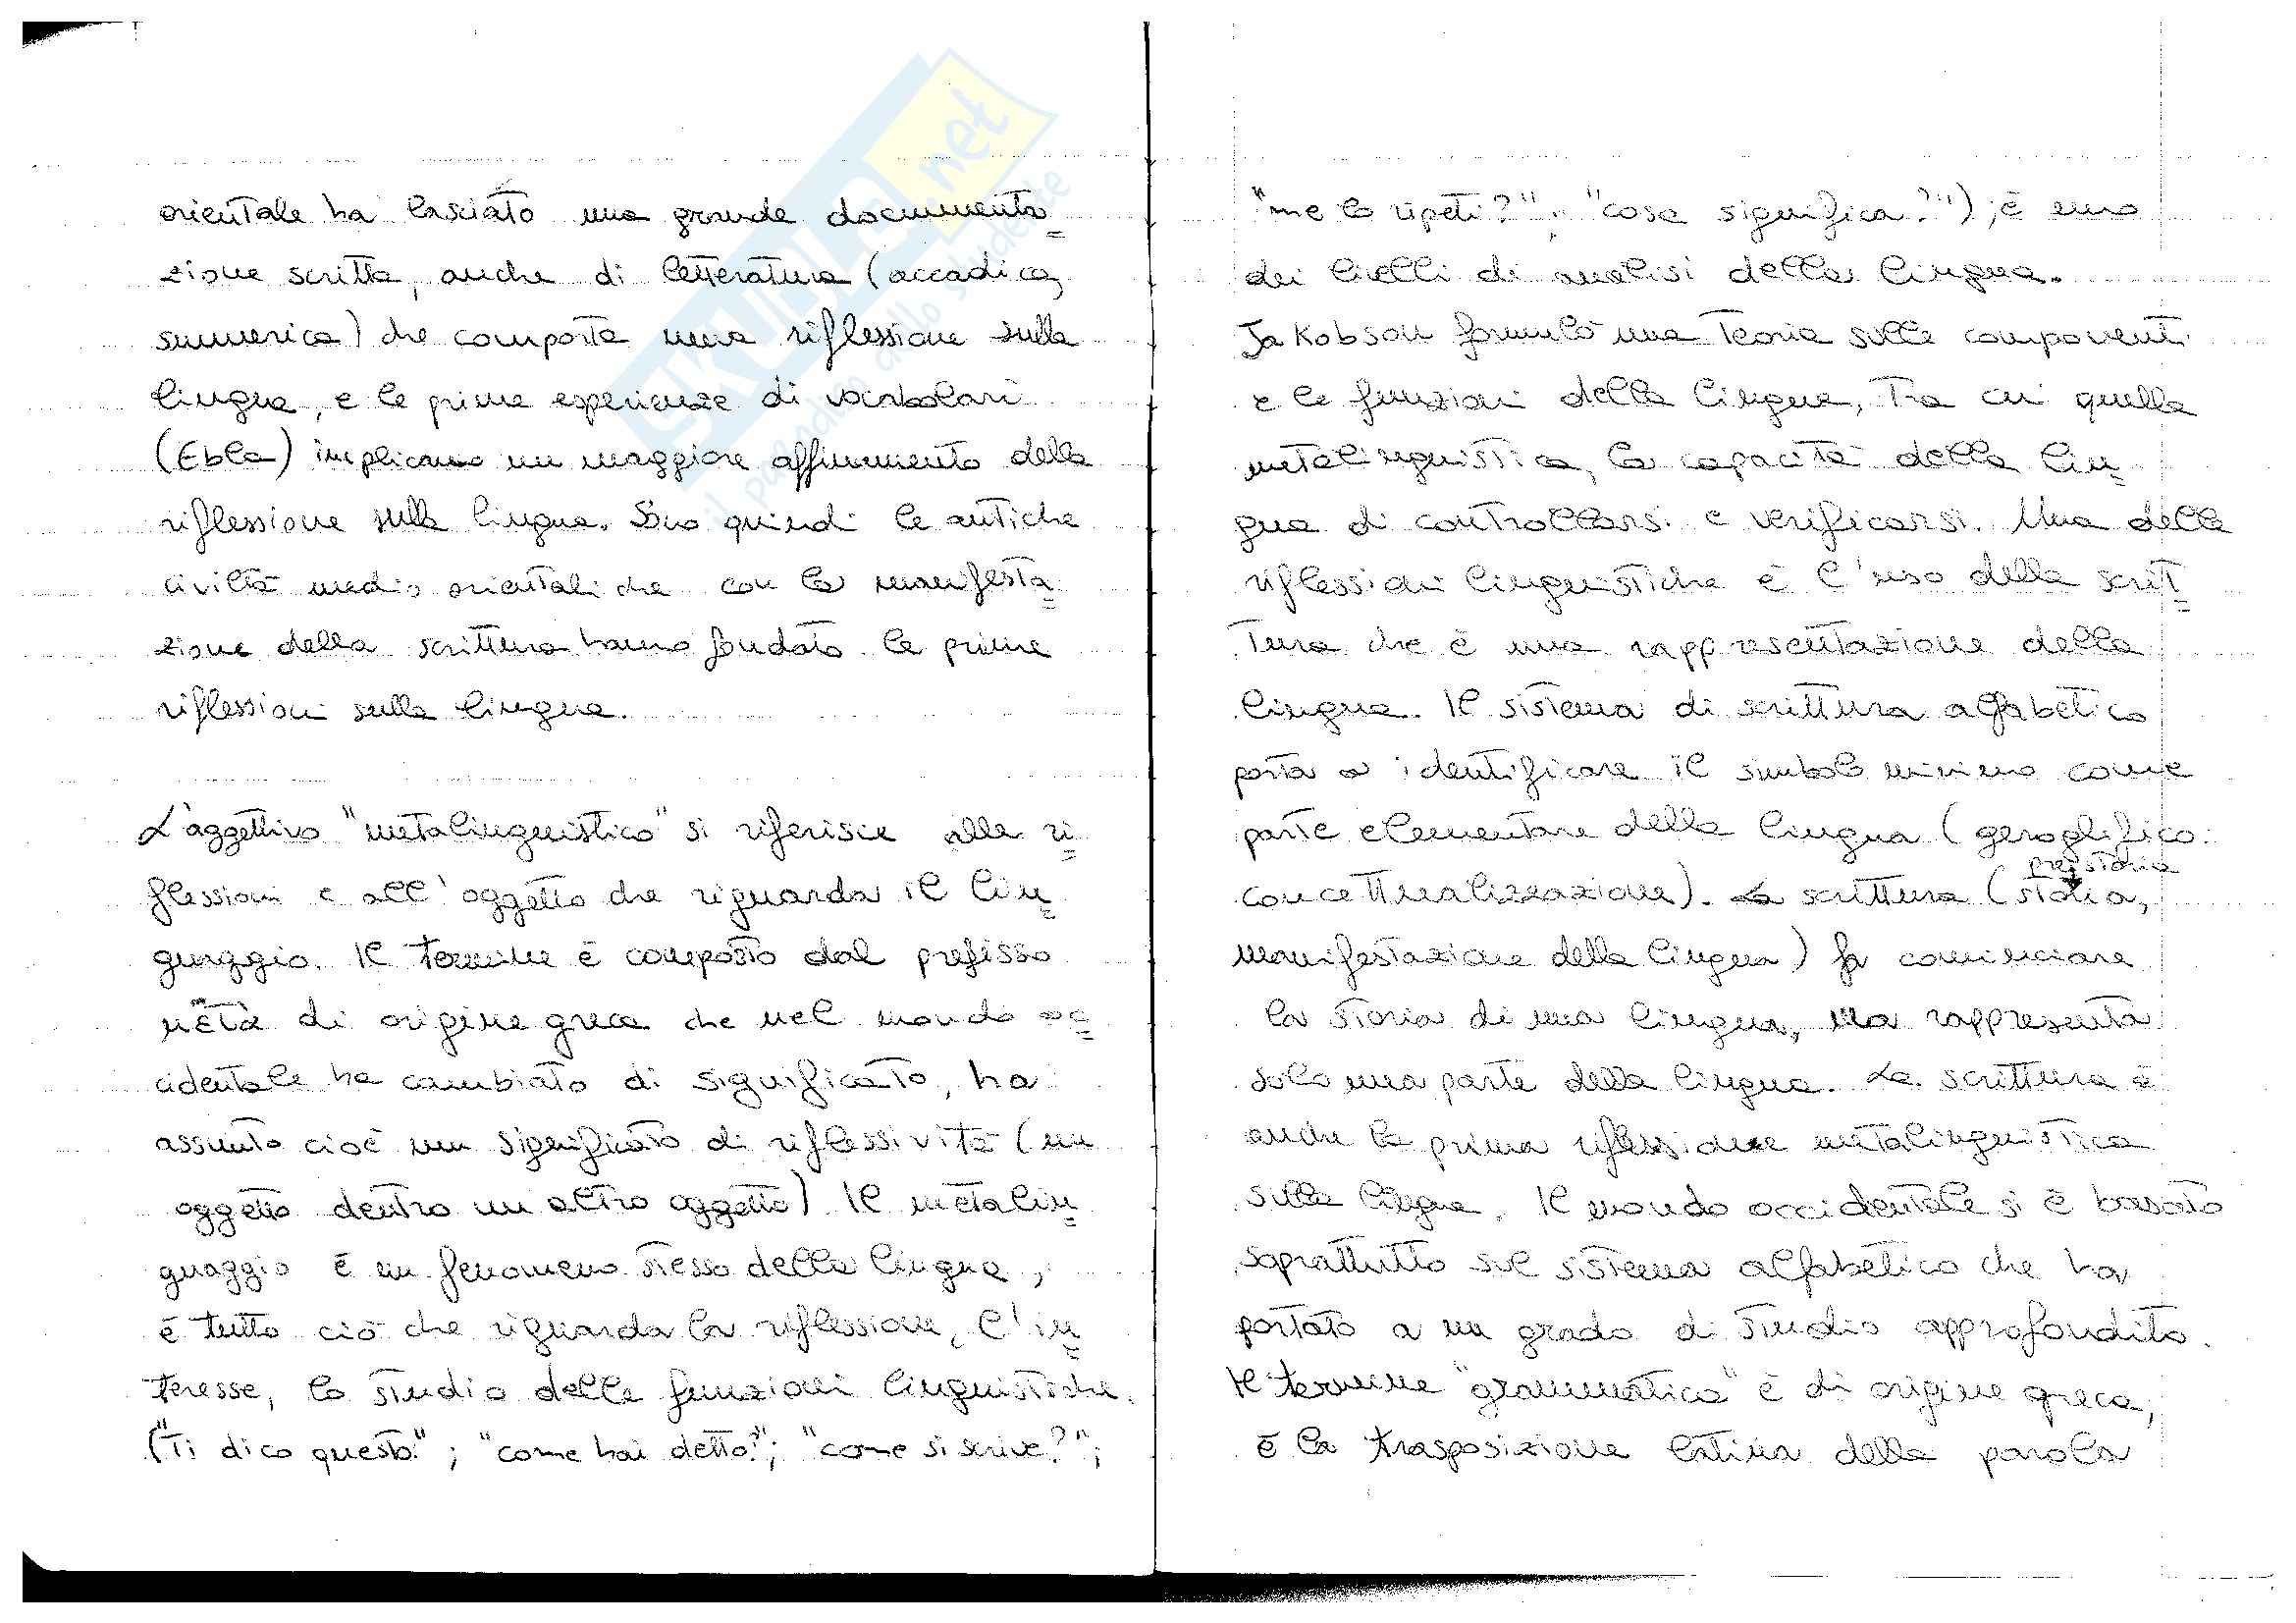 orientale ha lasciato una grande documenta=
zione scritta, anche di letteratura (accadica,
sumerica) che comporta una riflessione sulla
lingua, e le prime esperienze di vocabolari
(Ebla) implicano un maggiore affinamento della
riflessione sulla lingua. Sono quindi le antiche
civiltà medio orientali che con la manifesta=
zione della scrittura hanno fondato le prime
riflessioni sulla lingua.
L'aggettivo "metalinguistico" si riferisce alle ri=
flessioni e all'oggetto che riguarda il lin=
guaggio. Il termine è composto dal prefisso
metà di origine greca che nel mondo oc=
cidentale ha cambiato di significato, ha
assunto cioè un significato di riflessività (un
oggetto dentro un altro oggetto). Il metalin=
guaggio è un fenomeno stesso della lingua,
è tutto ciò che riguarda la riflessione, l'in=
teresse, lo studio delle funzioni linguistiche.
("Ti dico questo"; "come hai detto?"; "come si scrive?";
"me lo ripeti?"; "cosa significa?"); è uno
dei livelli di analisi della lingua.
Jakobson formulò una teoria sulle componenti
e le funzioni della lingua, tra cui quella
metalinguistica, la capacità della lin=
gua di controllarsi e verificarsi. Una delle
riflessioni linguistiche è l'uso della scrit=
tura che è una rappresentazione della
lingua. Il sistema di scrittura alfabetico
porta a identificare il simbolo minimo come
parte elementare della lingua (geroglifico:
concettualizzazione). La scrittura (storia,
preistoria
manifestazione della lingua) fa cominciare
la storia di una lingua, ma rappresenta
solo una parte della lingua. La scrittura è
anche la prima riflessione metalinguistica
sulla lingua. Il mondo occidentale si è basato
soprattutto sul sistema alfabetico che ha
portato a un grado di studio approfondito.
Il termine "grammatica" è di origine greca,
è la trasposizione latina della parola
SKUOLA.net
il paradiso dello studente